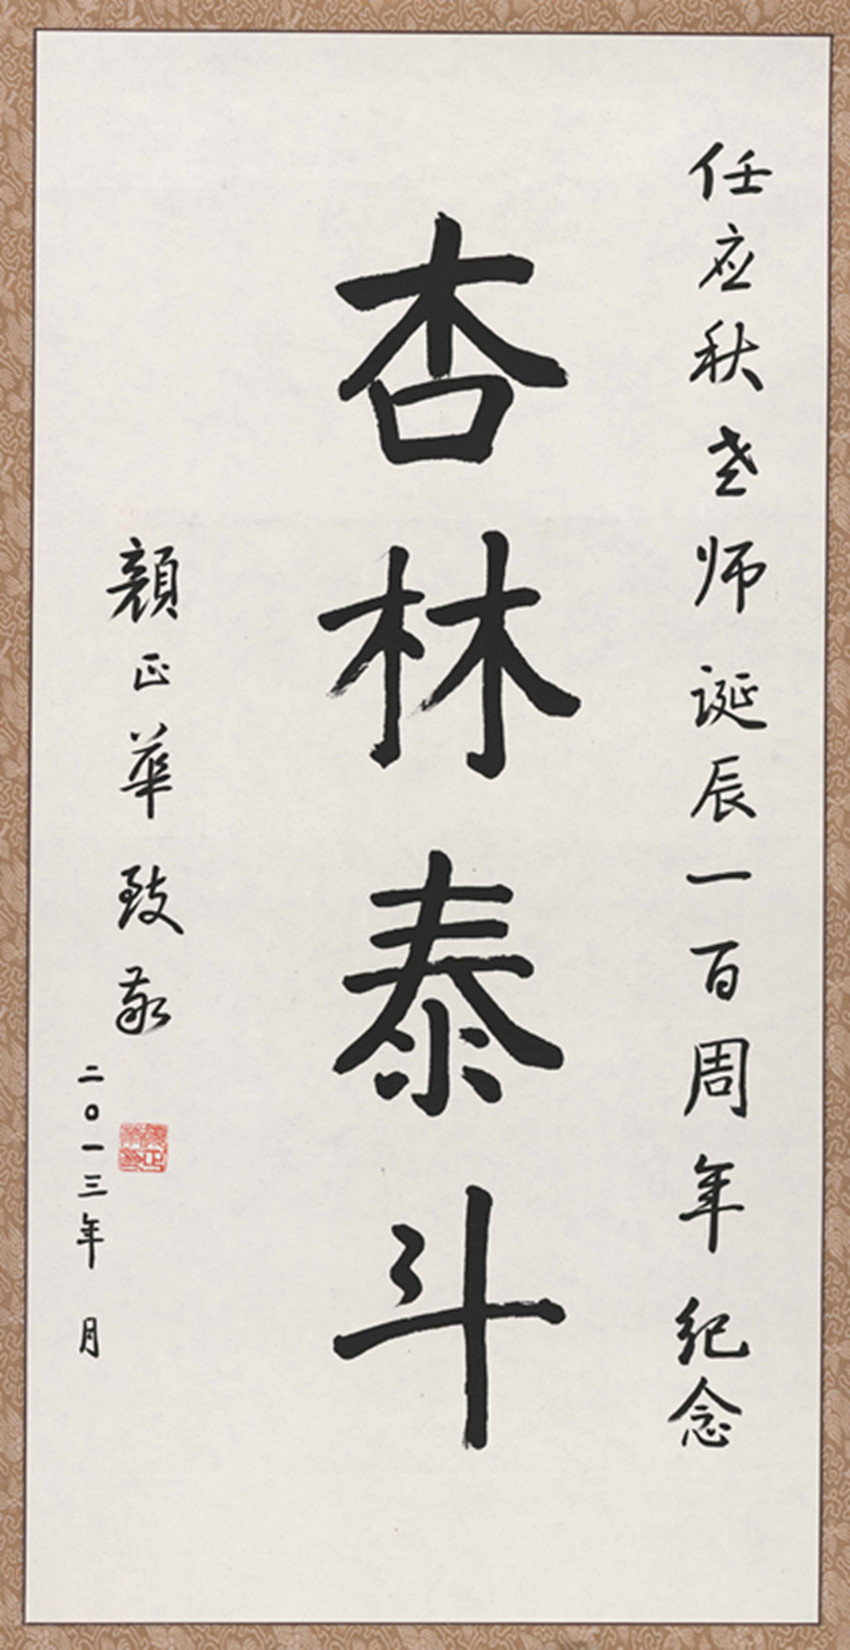 任应秋老师诞辰一百周年纪念
杏林泰斗
顔正華致敬
二〇一三年 月